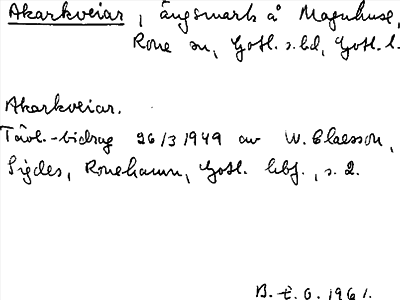 Akarkveiar, ängsmark å Magnhuse,
Rone sn, Gotl. s. hd, Gotl. l.
Akarkveiar.
Tävl.-bidrag 26/3 1949 av W. Claesson,
Sigdes, Ronehamn, Gotl. , s. 2.
B. t. O. 1961.